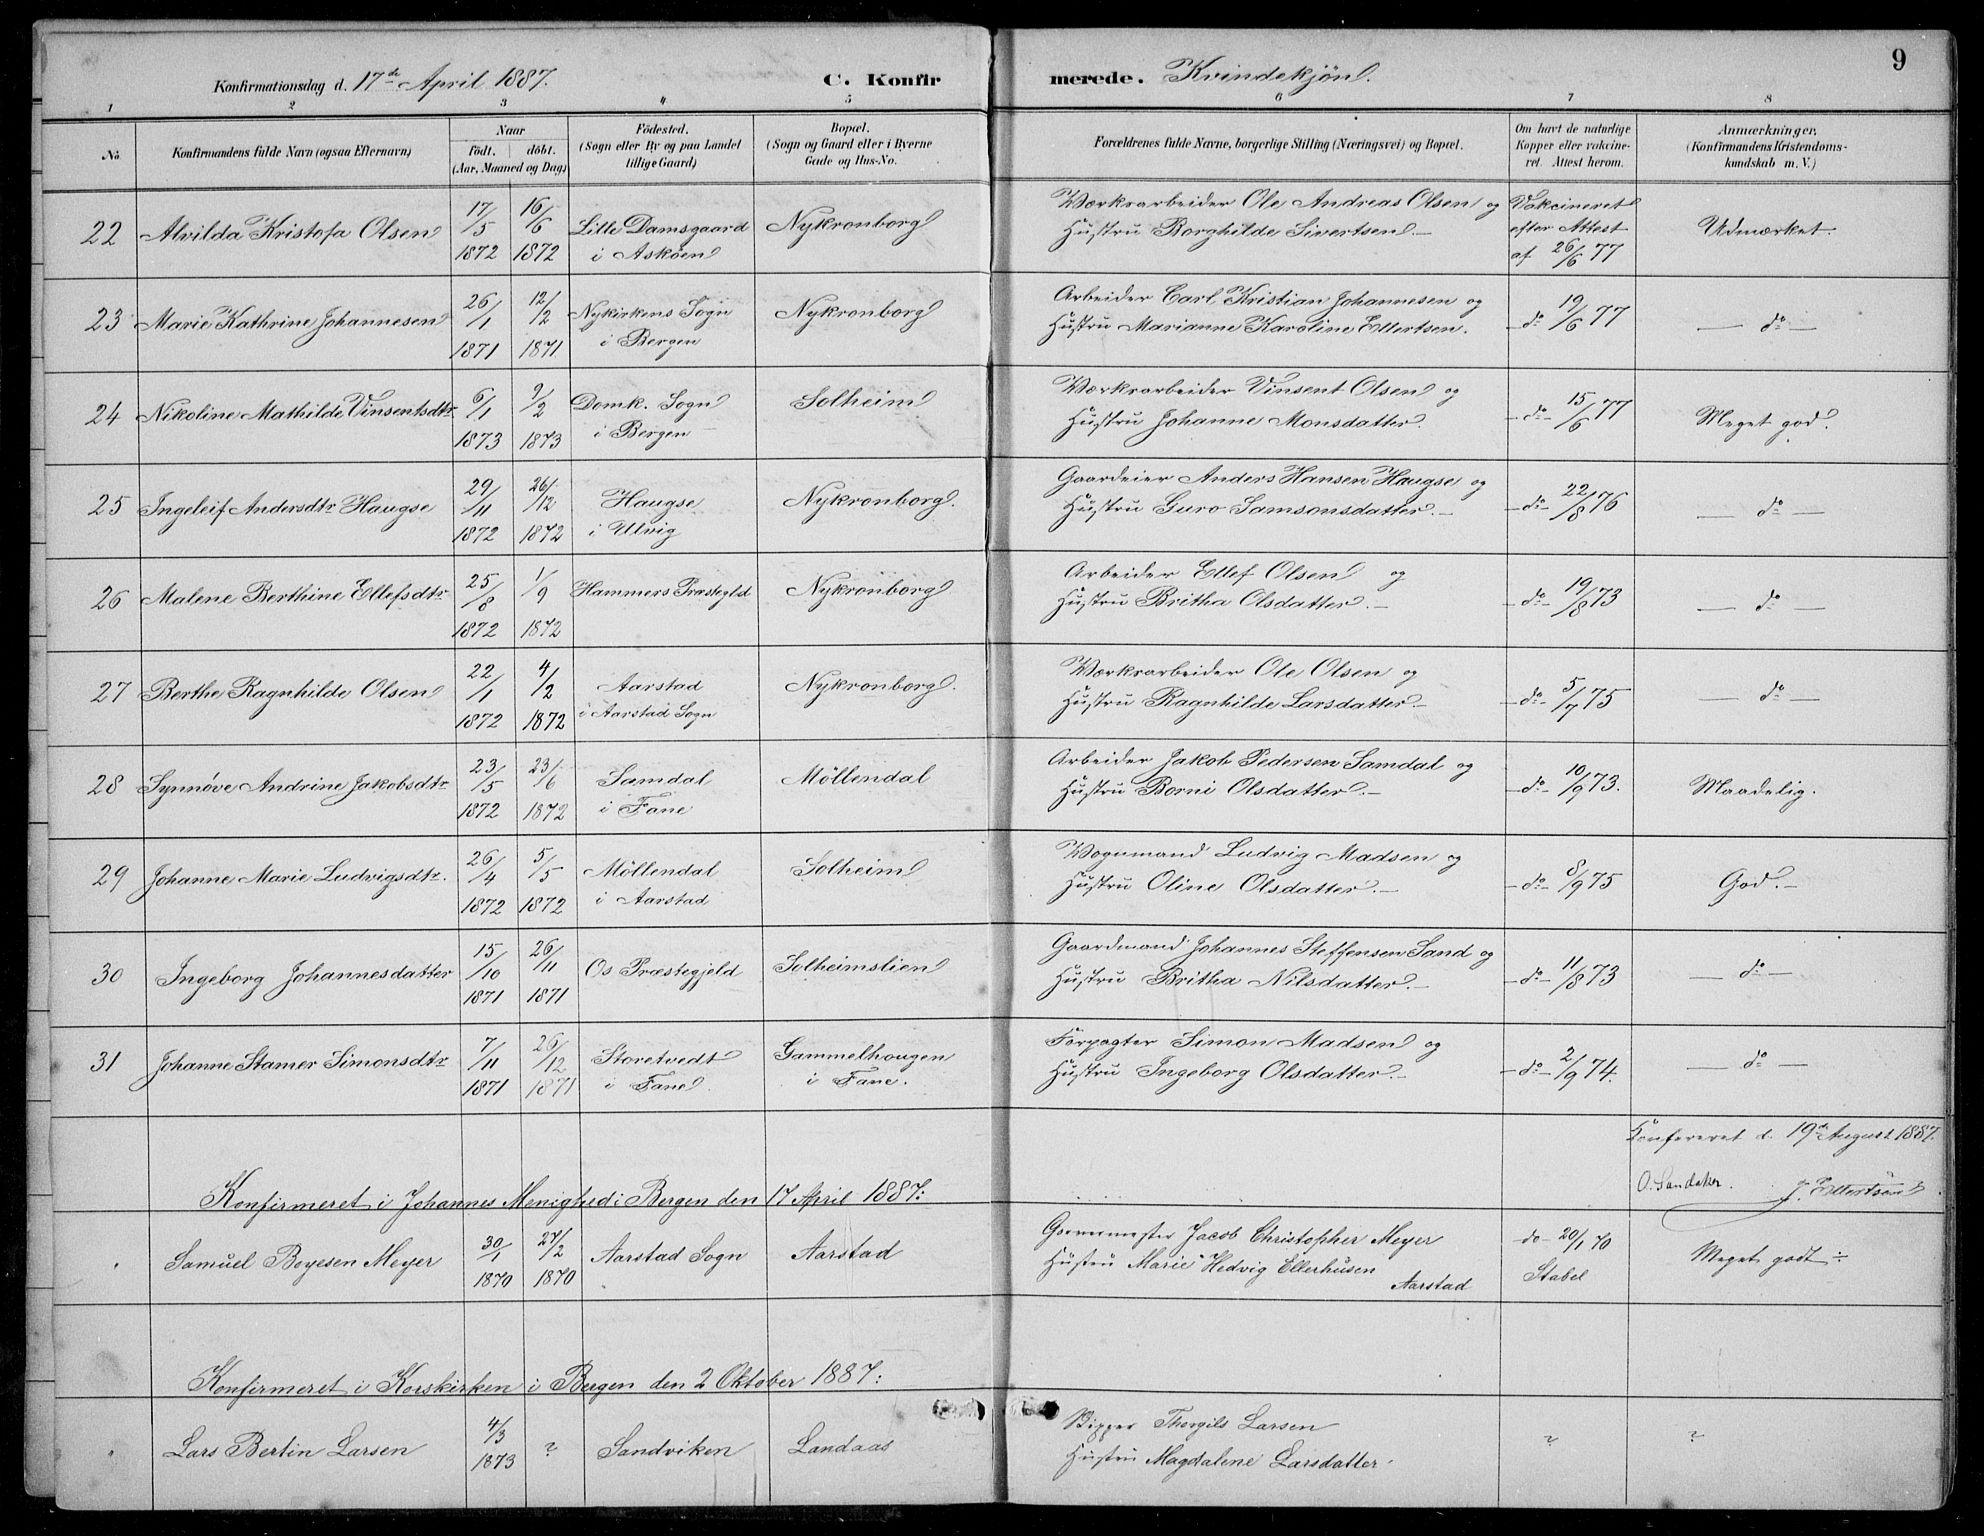 9
Konfirmationsdag d. 17de April 1887. C. Konfirmerede. Kvindekjøn.
1 2 3 4 5 6 7 8
No. Konfirmandens fulde Navn (ogsaa Efternavn) Naar födt. döbt. (Aar, Maaned og Dag) Födested. (Sogn eller By og paa Landet tillige Gaard) Bopæl. (Sogn og Gaard eller i Byerne Gade og Hus-No. Forældrenes fulde Navne, borgerlige Stilling (Næringsvei) og Bopæl. Om havt de naturlige Kopper eller vakcineret. Attest herom. Anmærkninger. (Konfirmandens Kristendomskundskab m. V.)
22 Alvilda Kristofa Olsen 17/5 1872 16/6 1872 Lille Damsgaard i Askøen Nykronborg Værksarbeider Ole Andreas Olsen og Hustru Borghilde Sivertsen.- Vakcineret efter Attest af 26/6 77 Udmærket.
23 Marie Kathrine Johannesen 26/1 1871 12/2 1871 Nykirkens Sogn i Bergen Nykronborg Arbeider Carl Kristian Johannesen og Hustru Marianne Karoline Ellertsen. -do- 19/6 77 - do -
24 Nikoline Mathilde Vinsentsdtr 6/1 1873 9/2 1873 Domk. Sogn i Bergen Solheim Værksarbeider Vinsent Olsen og Hustru Johanne Monsdatter. -do- 15/6 77 Meget god.
25 Ingeleif Andersdtr Haugse 29/11 1872 26/12 1872 Haugse i Ulvig Nykronborg. Gaardeier Anders Hansen Haugse og Hustru Guro Samsonsdatter.- -do- 22/8 76 - do -
26 Malene Berthine Ellefsdtr 25/8 1872 1/9 1872 Hammers Præstegld Nykronborg Arbeider Ellef Olsen og Hustru Britha Olsdatter.- -do- 19/8 73 - do -
27 Berthe Ragnhilde Olsen 22/1 1872 4/2 1872 Aarstad i Aarstad Sogn Nykronborg. Værksarbeider Ole Olsen og Hustru Ragnhilde Larsdatter.- -do- 5/7 75 - do -
28 Synnøve Andrine Jakobsdtr 23/5 1872 23/6 1872 Samdal i Fane Möllendal Arbeider Jakob Pedersen Samdal og Hustru Borni Olsdatter.- -do- 10/9 73. Maadelig.
29 Johanne Marie Ludvigsdtr. 26/4 1872 5/5 1872 Möllendal i Aarstad Solheim Vognmand Ludvig Madsen og Hustru Oline Olsdatter.- -do- 8/9 75 God.-
30 Ingeborg Johannesdatter 15/10 1871 26/11 1871 Os Præstegjeld Solheimslien Gaardmand Johannes Steffensen Sand og Hustru Britha Nilsdatter.- -do- 11/8 73 - do -
31 Johanne Stamer Simonsdtr 7/11 1871 26/12 1871 Storetvedt i Fane. Gammelhougen i Fane. Forpagter Simon Madsen og Hustru Ingeborg Olsdatter.- -do- 2/9 74. - do -
Konfereret d. 19de August 1887.
O. Sandaker. J. Ellertsen
Konfirmeret i Johannes Menighed i Bergen den 17 April 1887:
Samuel Boyesen Meyer 30/1 1870 27/2 1870 Aarstad Sogn Aarstad Jacob Christopher Meyer Hustru Marie Hedvig Ellerhusen Aarstad do 20/1 70 Stabel Meget godt
Konfirmeret i Korskirken i Bergen den 2 Oktober 1887:
Lars Bertin Larsen 4/3 1873 ? Sandviken Landaas Thorgils Larsen Hustru Magdalene Larsdatter. ? ?